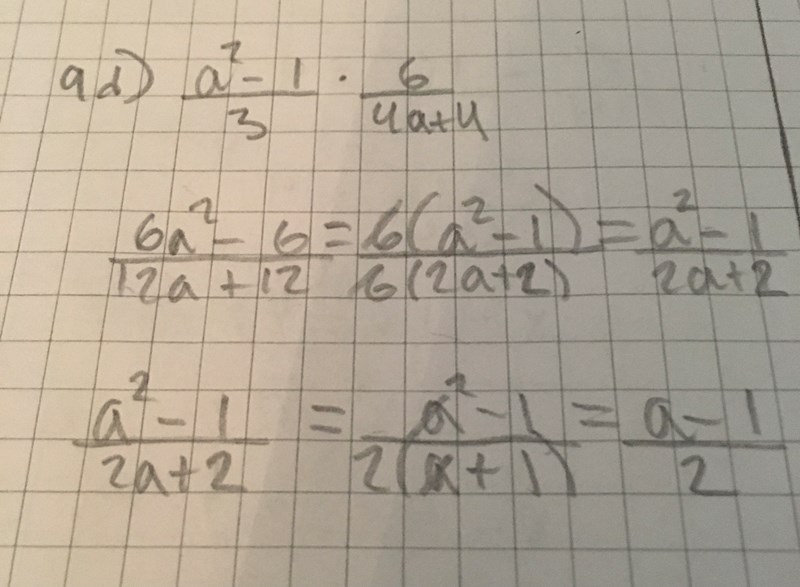 9d) (a² - 1)/3 · 6/(4a+4)
(6a² - 6)/(12a + 12) = 6(a² - 1)/6(2a+2) = (a² - 1)/(2a+2)
(a² - 1)/(2a+2) = (a² - 1)/2(a+1) = (a - 1)/2